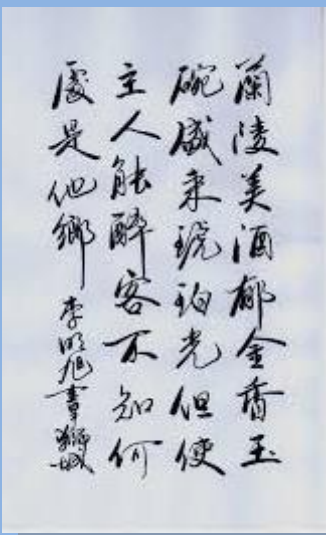 蘭陵美酒郁金香玉
碗盛来琥珀光但使
主人能醉客不知何
處是他鄉
李明旭書獅城